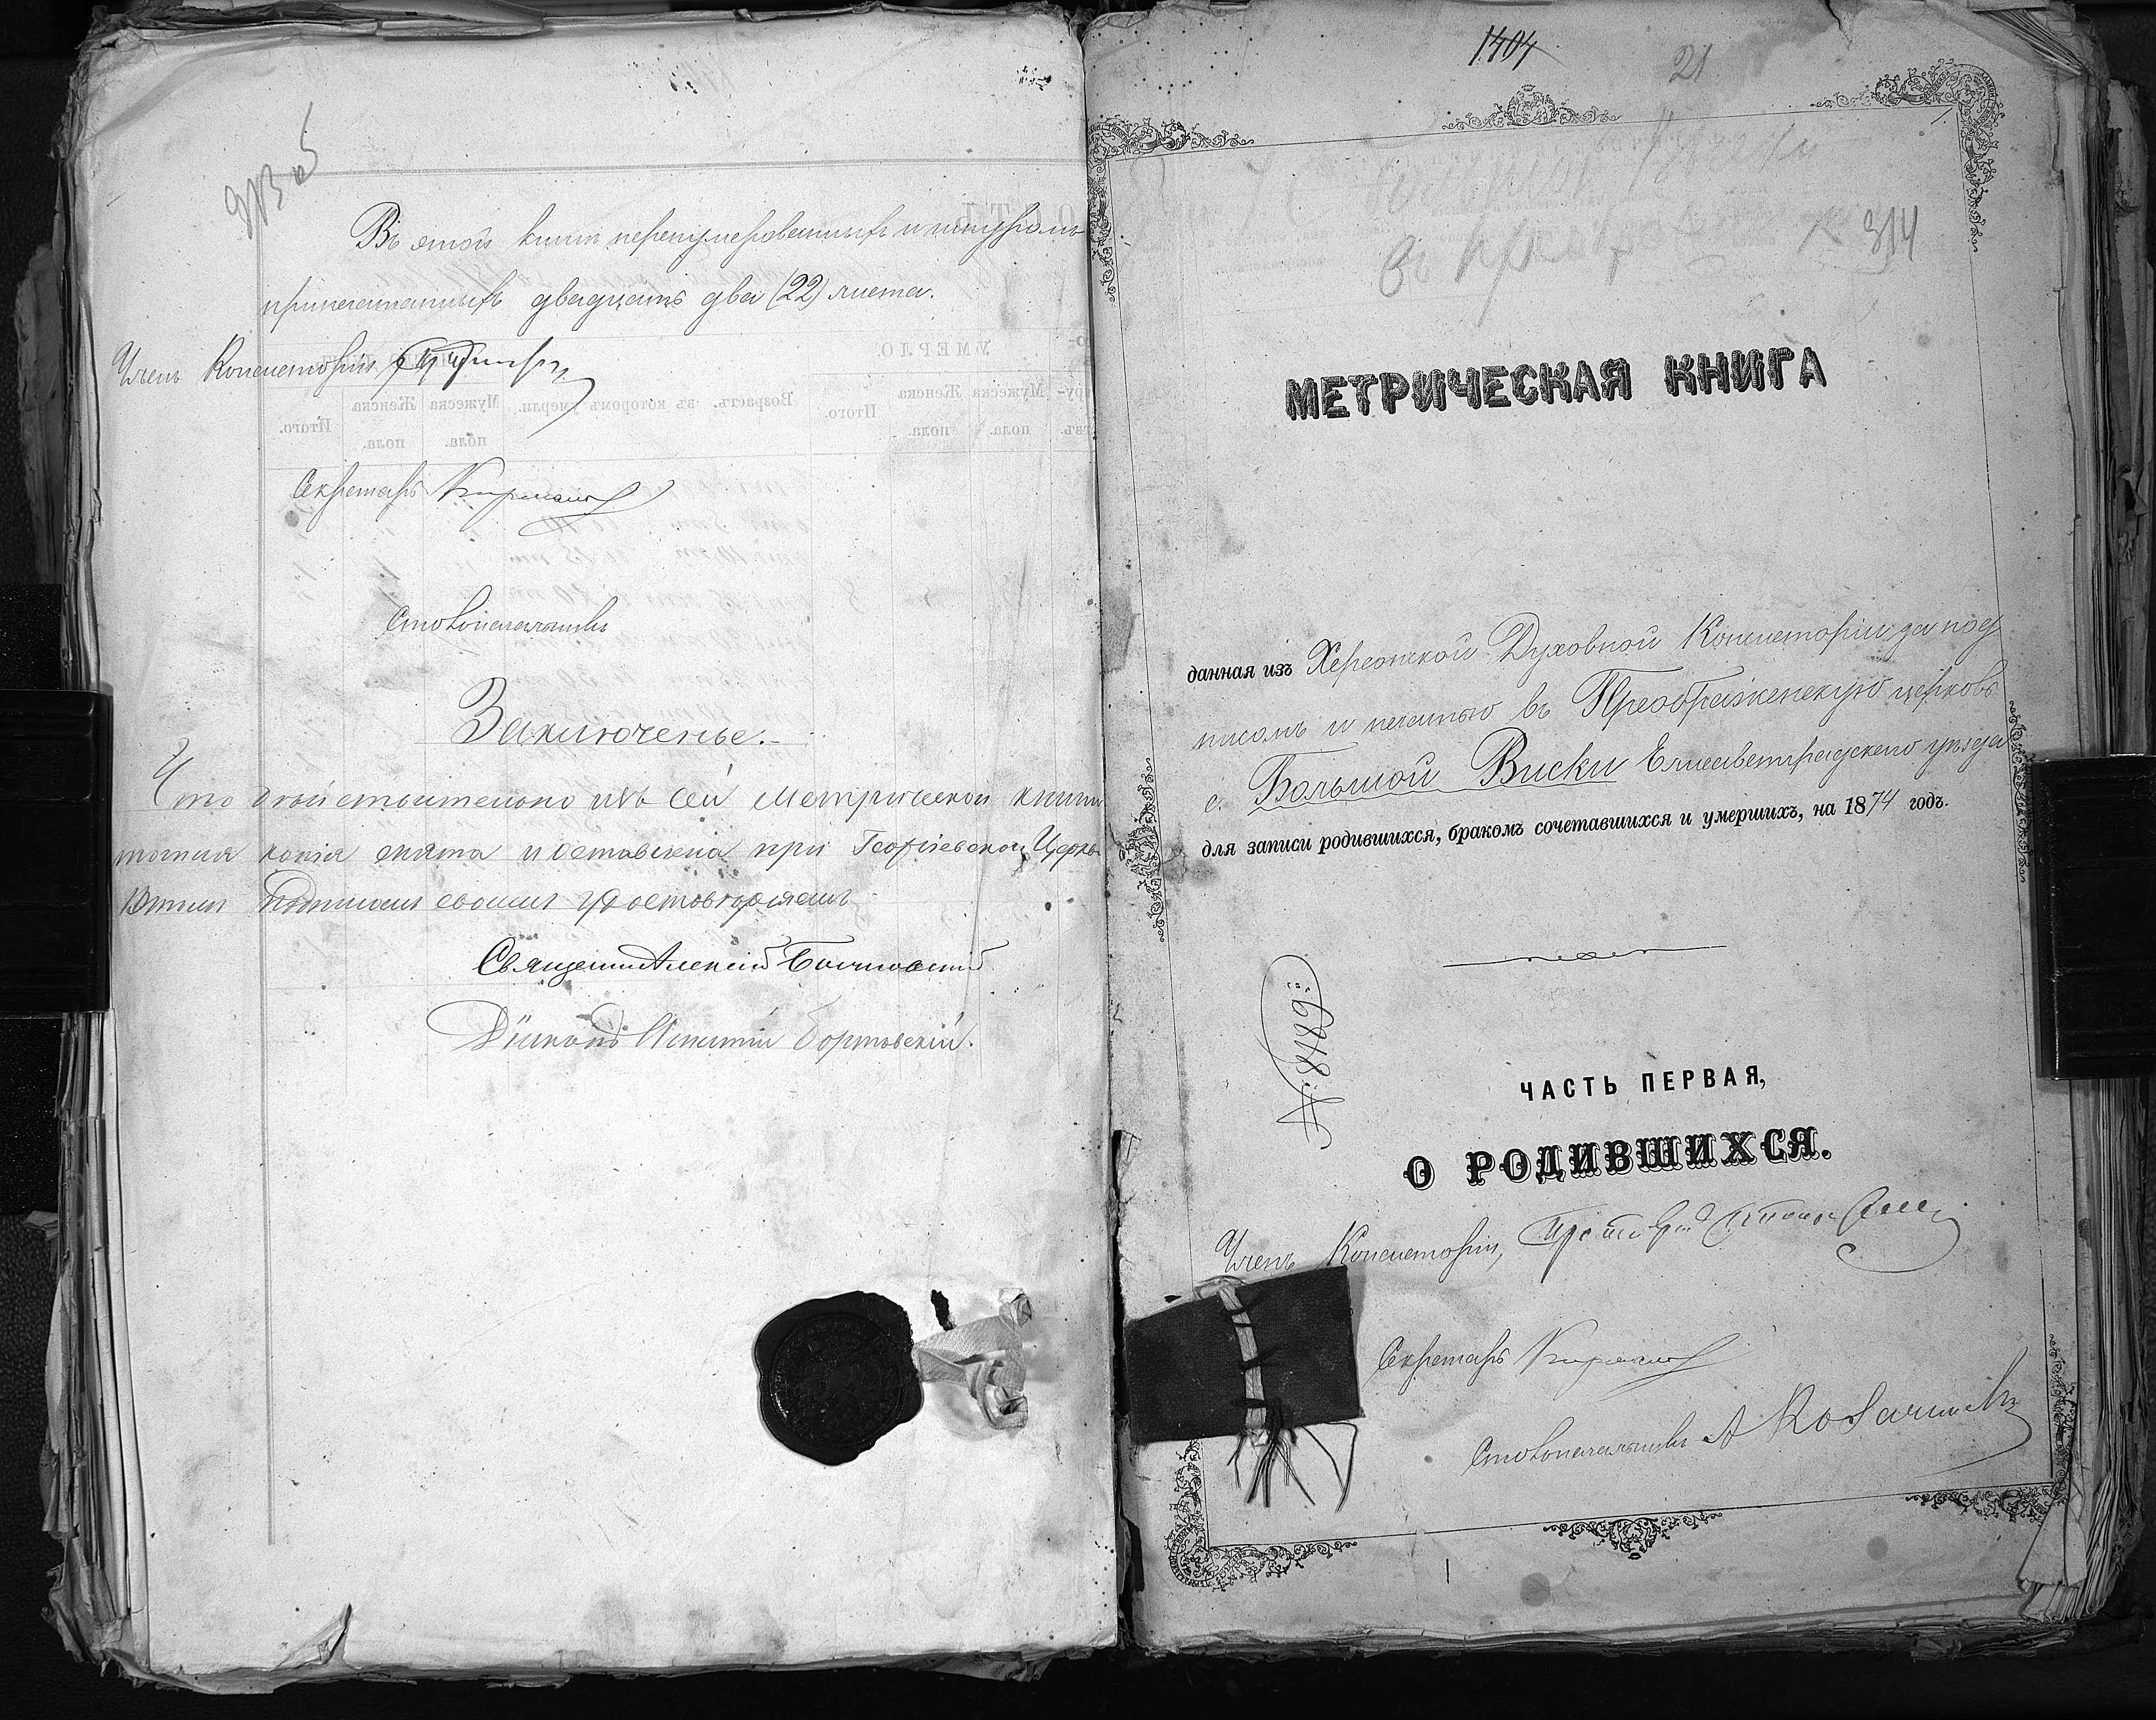 Въ этой книги перенумерованныхъ и шнуромъ
припечатанныхъ двадцать два (22) листа.
Членъ Консисторіи
Секретарь
Столоначальникъ
Заключенье.
Что действительно изъ сей метрической книги
точная копія снята и оставлена при Георгіевской Церкви
въ томъ подписомъ своимъ удостоверяемъ
Священникъ Алексій
Діаконъ Игнатій Бортовскій.
1404
21
314
МЕТРИЧЕСКАЯ КНИГА
данная изъ Херсонской Духовной Консисторіи за под
писомъ и печатью въ Преображенскую церковь
с. Большой Виски Елисаветградскаго уѣзда
для записи родившихся, бракомъ сочетавшихся и умершихъ, на 1874 годъ.
№ 8489
ЧАСТЬ ПЕРВАЯ,
О РОДИВШИХСЯ.
Членъ Консисторіи,
Секретарь
Столоначальникъ А